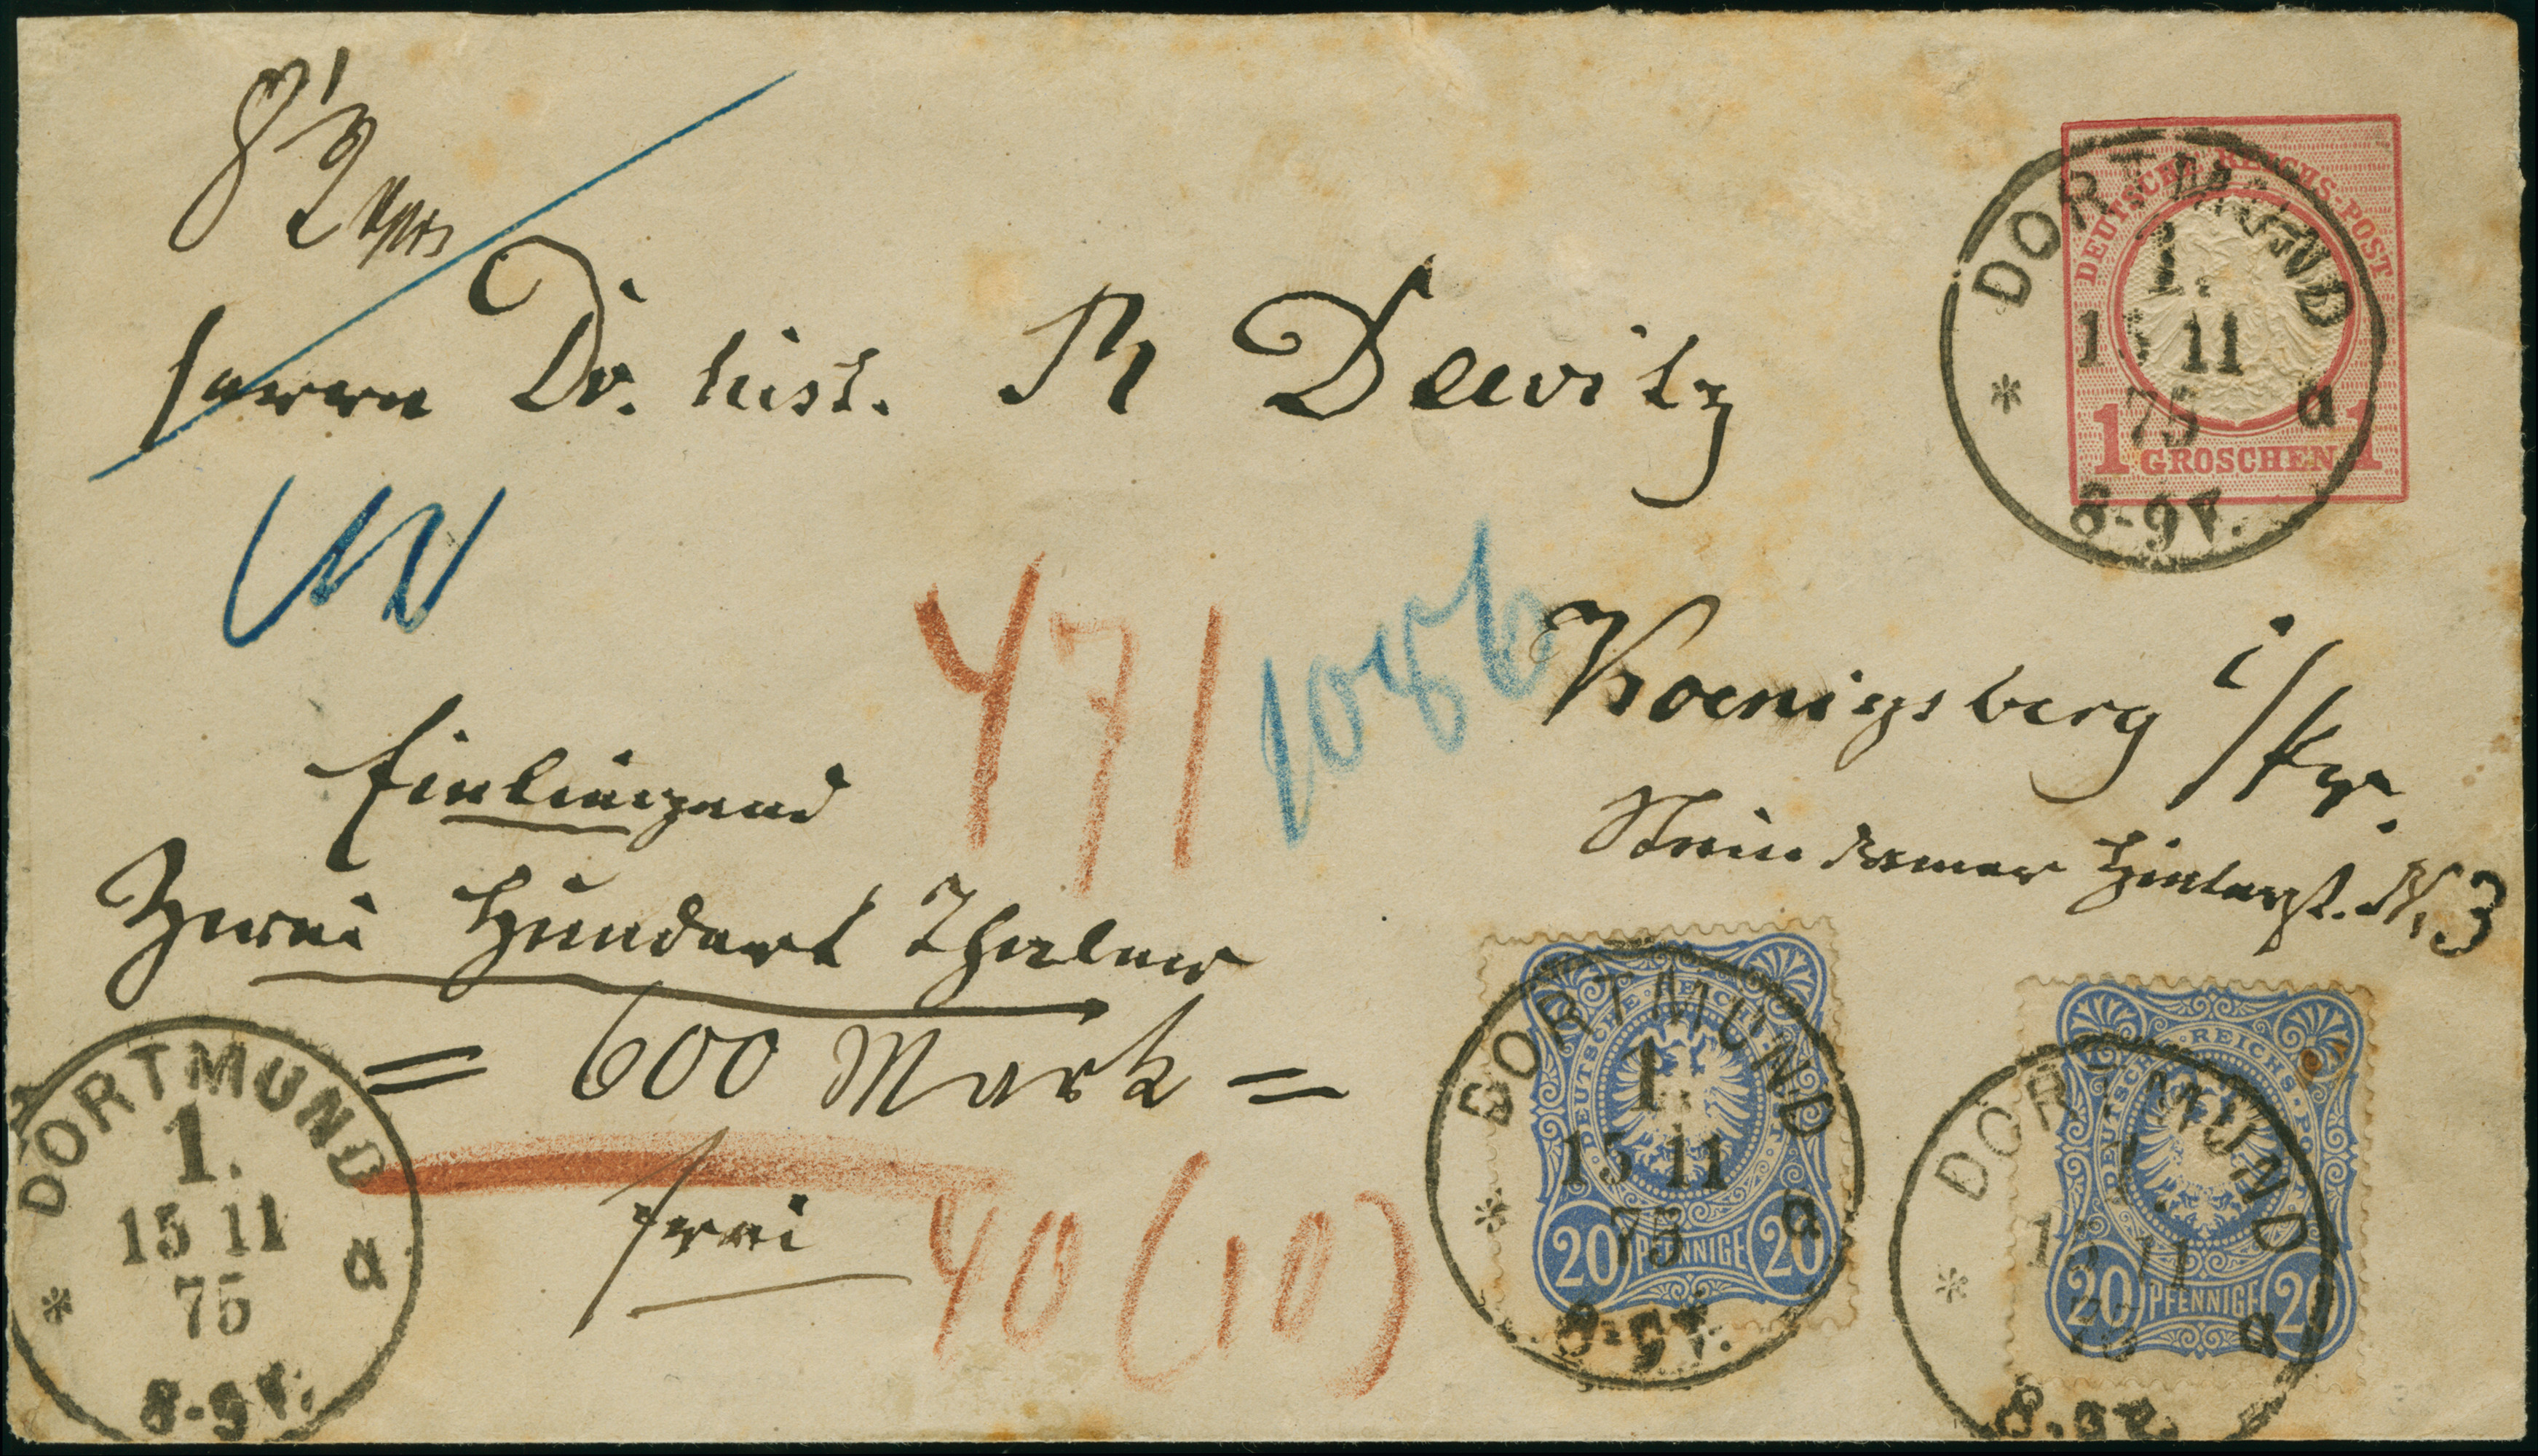 8 1/2
Herrn Dr. hist. R Dewitz
DEUTSCHE REICHS-POST
1 GROSCHEN 1
DORTMUND
1.
15 11
75
* a
8-9V.
471
1086
Koenigsberg i/Pr.
Steindammer Hinterst. N. 3
Einliegend
Zwei Hundert Thaler
= 600 Mark =
frei
40 (10)
DORTMUND
1.
15 11
75
* a
8-9V.
DEUTSCHE REICHS-POST
20 PFENNIGE 20
DORTMUND
1.
15 11
75
* a
8-9V.
DEUTSCHE REICHS-POST
20 PFENNIGE 20
DORTMUND
1.
15 11
75
* a
8-9V.